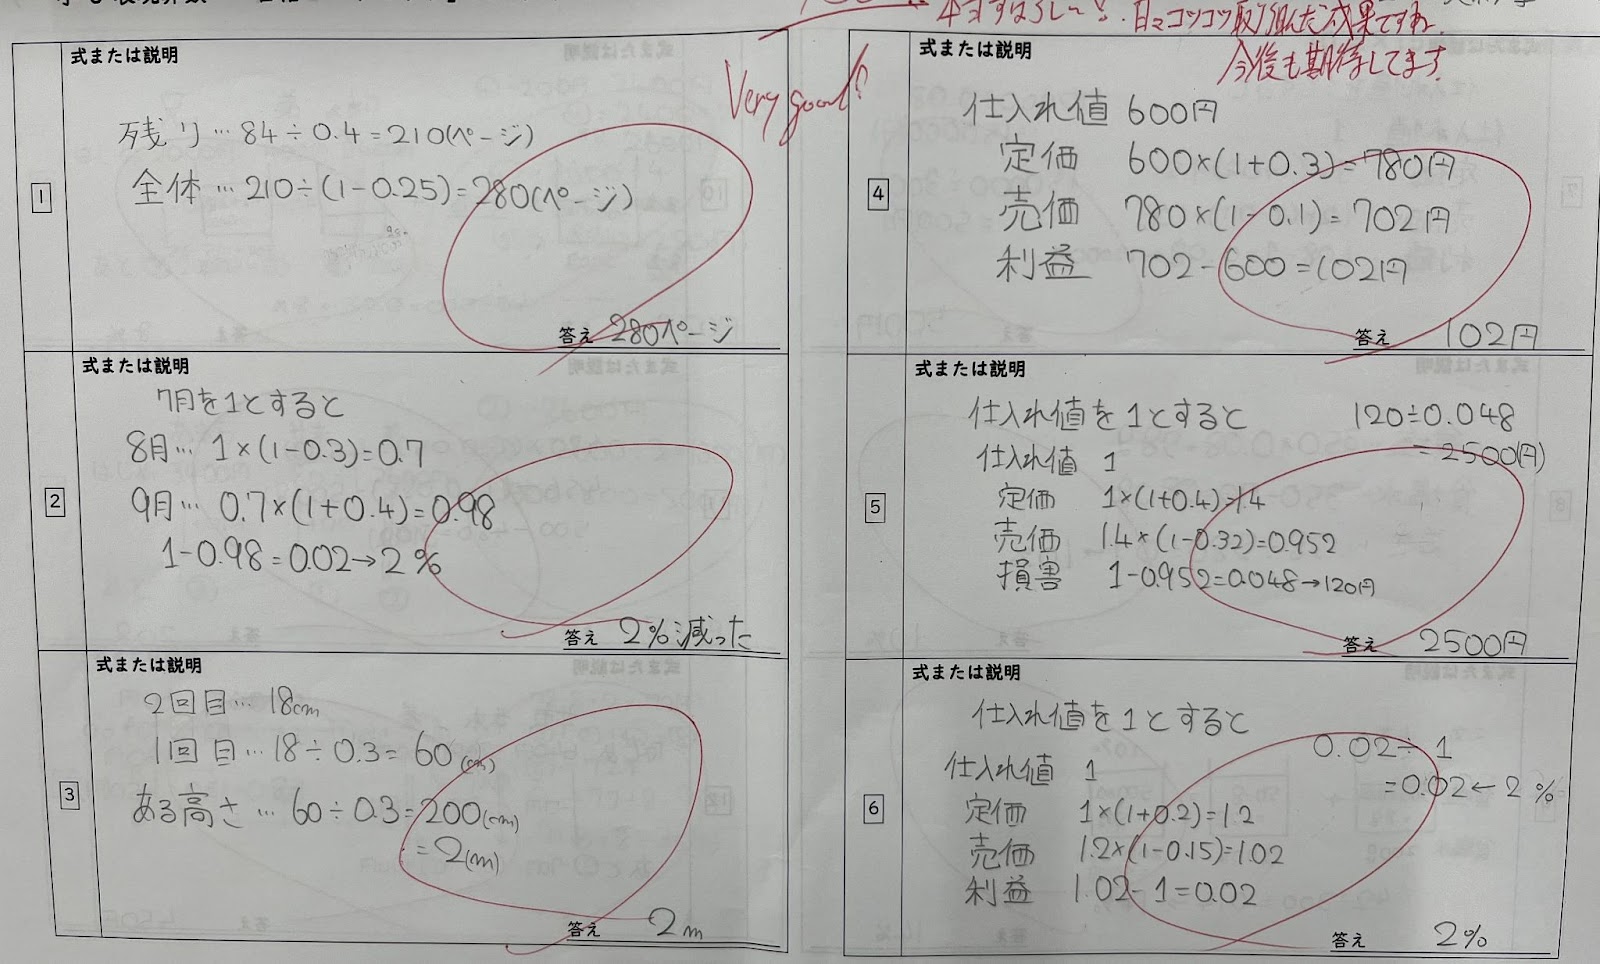 すばらしい!日々コツコツ取り組んだ成果ですね
今後も期待してます
Very good!
式または説明
1
残り…84÷0.4=210(ページ)
全体…210÷(1-0.25)=280(ページ)
答え 280ページ
式または説明
2
7月を1とすると
8月…1×(1-0.3)=0.7
9月…0.7×(1+0.4)=0.98
1-0.98=0.02→2%
答え 2%減った
式または説明
3
2回目…18cm
1回目…18÷0.3=60(cm)
ある高さ…60÷0.3=200(cm)
=2(m)
答え 2m
式または説明
4
仕入れ値 600円
定価 600×(1+0.3)=780円
売価 780×(1-0.1)=702円
利益 702-600=102円
答え 102円
式または説明
5
仕入れ値を1とすると
仕入れ値 1
定価 1×(1+0.4)=1.4
売価 1.4×(1-0.32)=0.952
損害 1-0.952=0.048→120円
120÷0.048
=2500(円)
答え 2500円
式または説明
6
仕入れ値を1とすると
仕入れ値 1
定価 1×(1+0.2)=1.2
売価 1.2×(1-0.15)=1.02
利益 1.02-1=0.02
0.02÷1
=0.02←2%
答え 2%